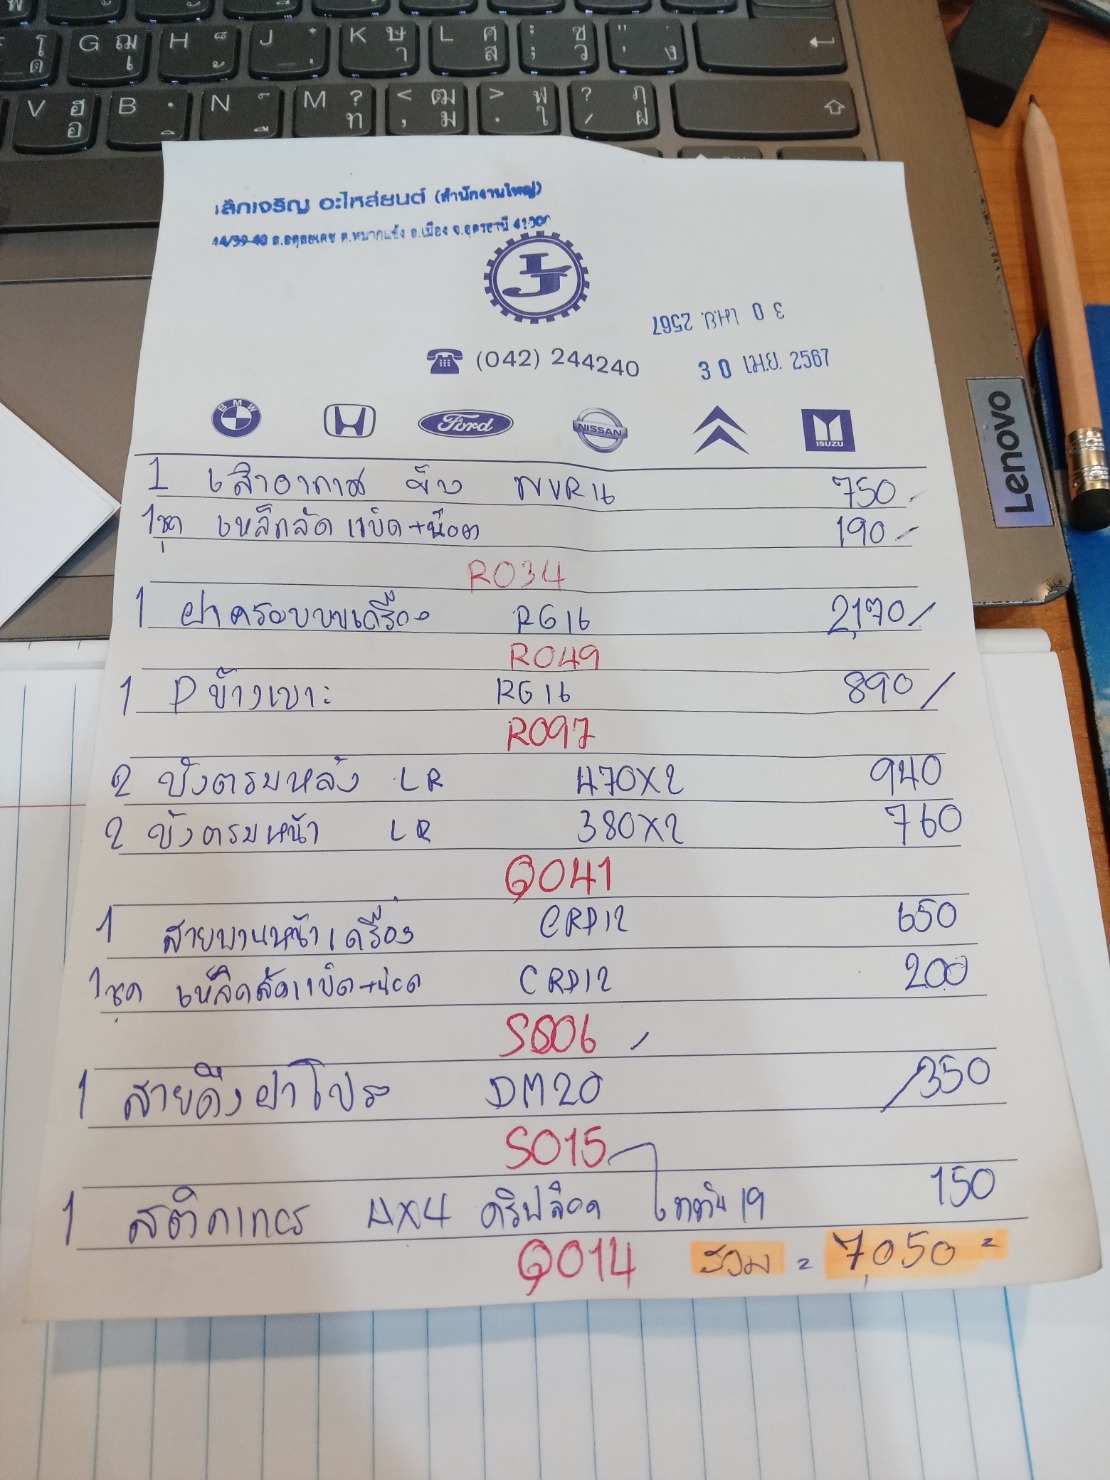 เล็กเจริญ อะไหล่ยนต์ (สำนักงานใหญ่)
44/39-40 ถ.อดุลยเดช ต.หมากแข้ง อ.เมือง จ.อุดรธานี 41000
LJ
30 เม.ย. 2567
(042) 244240
30 เม.ย. 2567
BMW
Ford
NISSAN
ISUZU
1 เสาอากาศ ข้าง NVR16 750.-
1ชุด เหล็กลัด แบ็ต+น๊อต 190.-
R034
1 ฝาครอบบนเครื่อง RG16 2,170/
R049
1 P ข้างเบาะ RG16 890/
R097
2 บังตรมหลัง LR 470X2 940
2 บังตรมหน้า LR 380X2 760
Q041
1 สายพานหน้าเครื่อง CRD12 650
1ชุด เหล็กลัดแบ็ต+น๊อต CRD12 200
S006
1 สายดึงฝาโปรง DM20 350
S015
1 สติกเกอร์ 4X4 ดิฟล็อค ไททัน 19 150
Q014 รวม = 7,050 =
Lenovo
G ฌ เ
H
J
K ษ า
L ศ ส
: ; ซ ว
" ' . ง
V ฮ อ
B
N
M ? ท
< , ฒ ม
> . ฬ ใ
? / ฦ ฝ